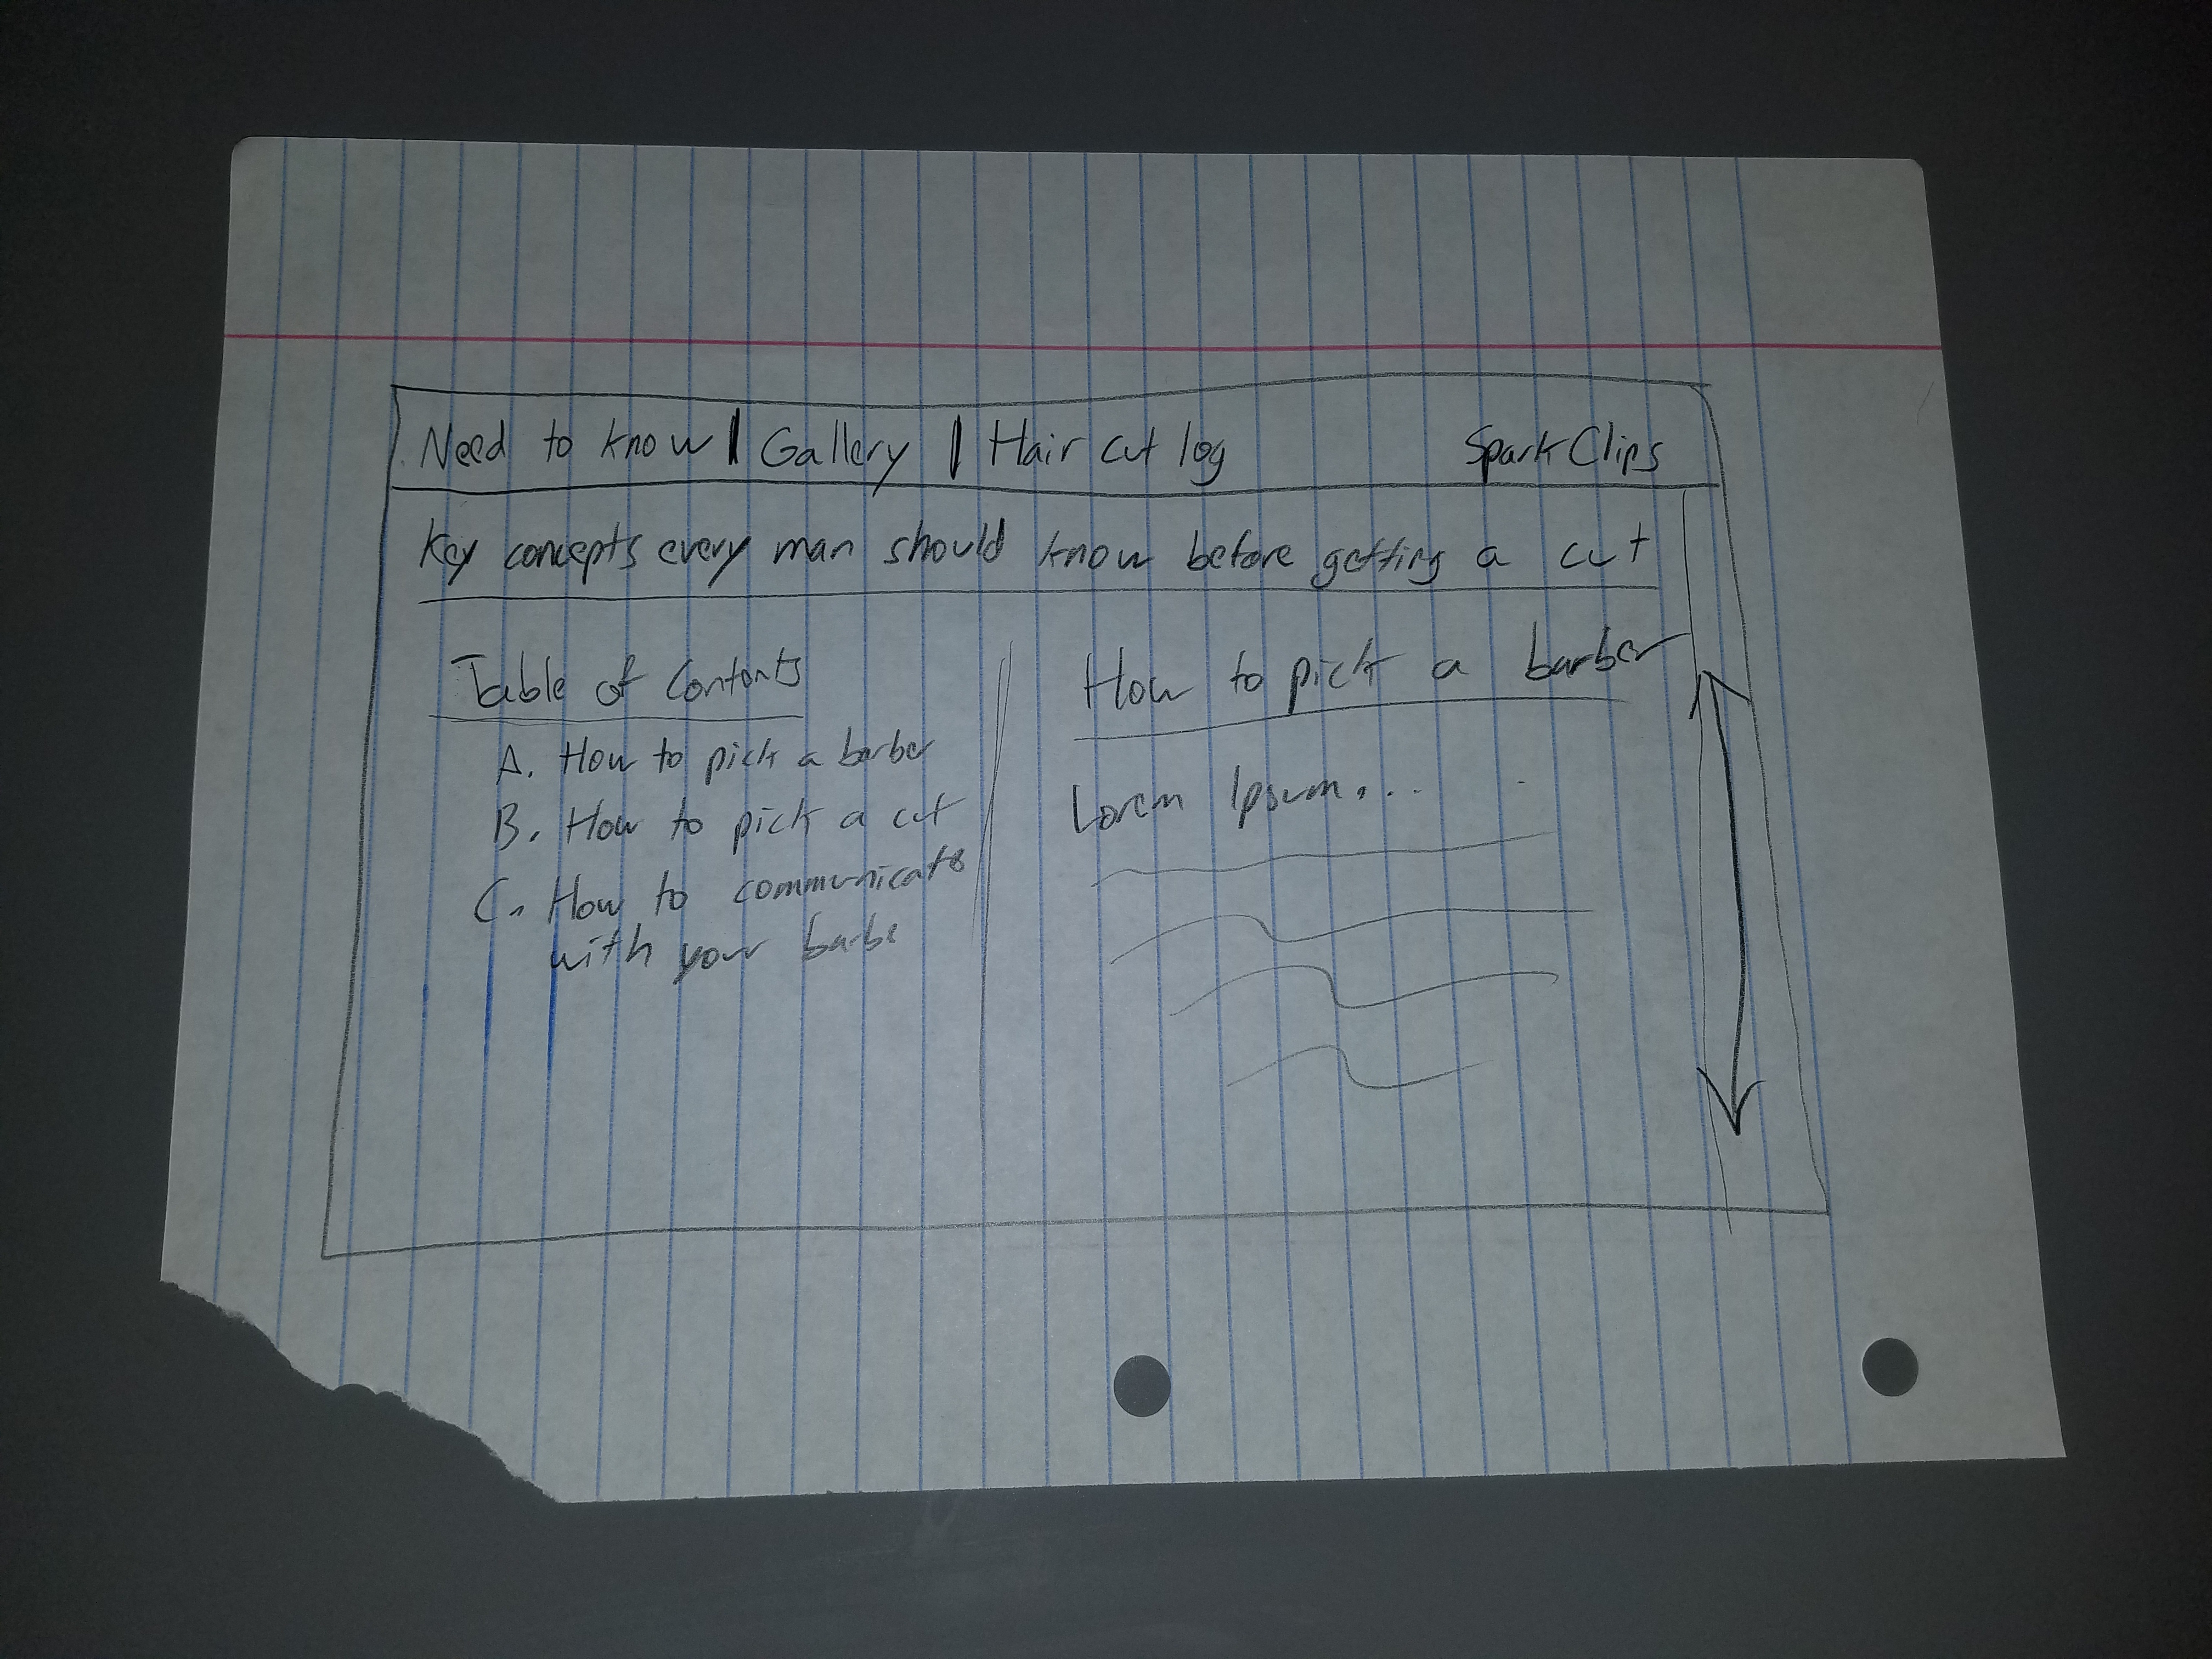 Need to know | Gallery | Hair cut log SparkClips
Key concepts every man should know before getting a cut
Table of Contents
A. How to pick a barber
B. How to pick a cut
C. How to communicate
with your barbe
How to pick a barber
Lorem Ipsum...